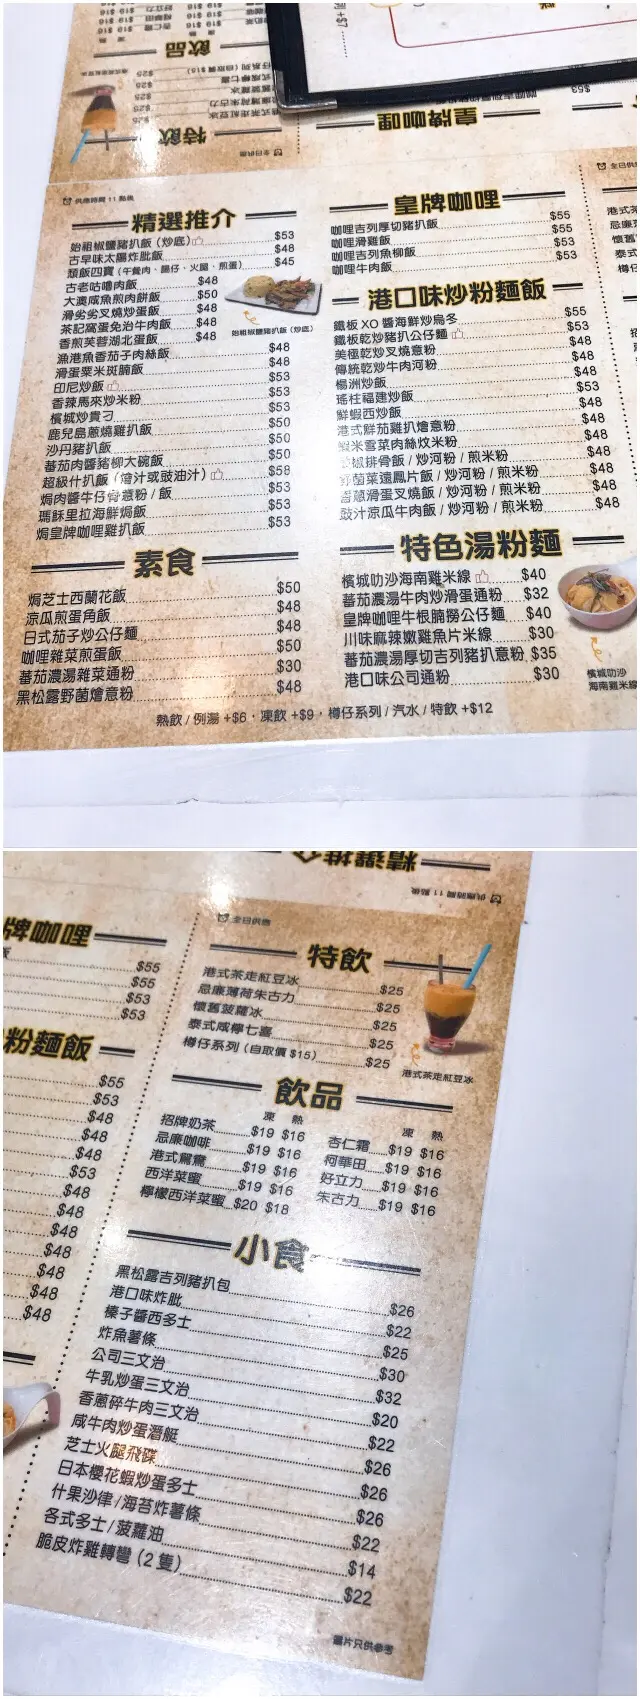 飲品
特飲
皇牌咖哩
供應時間 11 點後
精選推介
始祖椒鹽豬扒飯 (炒底) $53
古早味太腸炸肶飯 $48
頹飯四寶 (午餐肉、腸仔、火腿、煎蛋) $45
古老咕嚕肉飯 $48
大澳咸魚煎肉餅飯 $50
滑劣劣叉燒炒蛋飯 $48
茶記窩蛋免治牛肉飯 $48
香煎芙蓉湖北蛋飯 $48
始祖椒鹽豬扒飯 (炒底)
漁港魚香茄子肉絲飯 $48
滑蛋粟米斑腩飯 $48
印尼炒飯 $53
香辣馬來炒米粉 $53
檳城炒貴刁 $53
鹿兒島蔥燒雞扒飯 $50
沙丹豬扒飯 $50
蕃茄肉醬豬柳大碗飯 $50
超級什扒飯 (燴汁或豉油汁) $58
焗肉醬牛仔骨意粉 / 飯 $53
瑪穌里拉海鮮焗飯 $53
焗皇牌咖哩雞扒飯 $53
素食
焗芝士西蘭花飯 $50
涼瓜煎蛋角飯 $48
日式茄子炒公仔麵 $48
咖哩雜菜煎蛋飯 $50
蕃茄濃湯雜菜通粉 $30
黑松露野菌燴意粉 $48
皇牌咖哩
咖哩吉列厚切豬扒飯 $55
咖哩滑雞飯 $55
咖哩吉列魚柳飯 $53
咖哩牛肉飯 $53
港口味炒粉麵飯
鐵板 XO 醬海鮮炒烏冬 $55
鐵板乾炒豬扒公仔麵 $53
美極乾炒叉燒意粉 $48
傳統乾炒牛肉河粉 $48
楊洲炒飯 $48
瑤柱福建炒飯 $53
鮮蝦西炒飯 $48
港式鮮茄雞扒燴意粉 $48
蝦米雪菜肉絲炆米粉 $48
椒排骨飯 / 炒河粉 / 煎米粉 $48
菌菜遠鳳片飯 / 炒河粉 / 煎米粉 $48
香蔥滑蛋叉燒飯 / 炒河粉 / 煎米粉 $48
豉汁涼瓜牛肉飯 / 炒河粉 / 煎米粉 $48
特色湯粉麵
檳城叻沙海南雞米線 $40
蕃茄濃湯牛肉炒滑蛋通粉 $32
皇牌咖哩牛根腩撈公仔麵 $40
川味麻辣嫩雞魚片米線 $30
蕃茄濃湯厚切吉列豬扒意粉 $35
港口味公司通粉 $30
檳城叻沙
海南雞米線
熱飲 / 例湯 +$6，凍飲 +$9，樽仔系列 / 汽水 / 特飲 +$12
精選推介
供應時間 11 點後
牌咖哩
$55
$55
$53
$53
粉麵飯
$55
$53
$48
$48
$48
$53
$48
$48
$48
$48
$48
$48
$48
全日供應
特飲
港式茶走紅豆冰 $25
忌廉薄荷朱古力 $25
懷舊菠蘿冰 $25
泰式咸檸七喜 $25
樽仔系列 (自取價 $15) $25
港式茶走紅豆冰
飲品
凍 熱
招牌奶茶 $19 $16
忌廉咖啡 $19 $16
港式鴛鴦 $19 $16
西洋菜蜜 $19 $16
檸檬西洋菜蜜 $20 $18
凍 熱
杏仁霜 $19 $16
柯華田 $19 $16
好立力 $19 $16
朱古力 $19 $16
小食
黑松露吉列豬扒包 $26
港口味炸肶 $22
榛子醬西多士 $25
炸魚薯條 $30
公司三文治 $32
牛乳炒蛋三文治 $20
香蔥碎牛肉三文治 $22
咸牛肉炒蛋潛艇 $26
芝士火腿飛碟 $26
日本櫻花蝦炒蛋多士 $26
什果沙律 / 海苔炸薯條 $22
各式多士 / 菠蘿油 $14
脆皮炸雞轉彎 (2 隻) $22
圖片只供參考